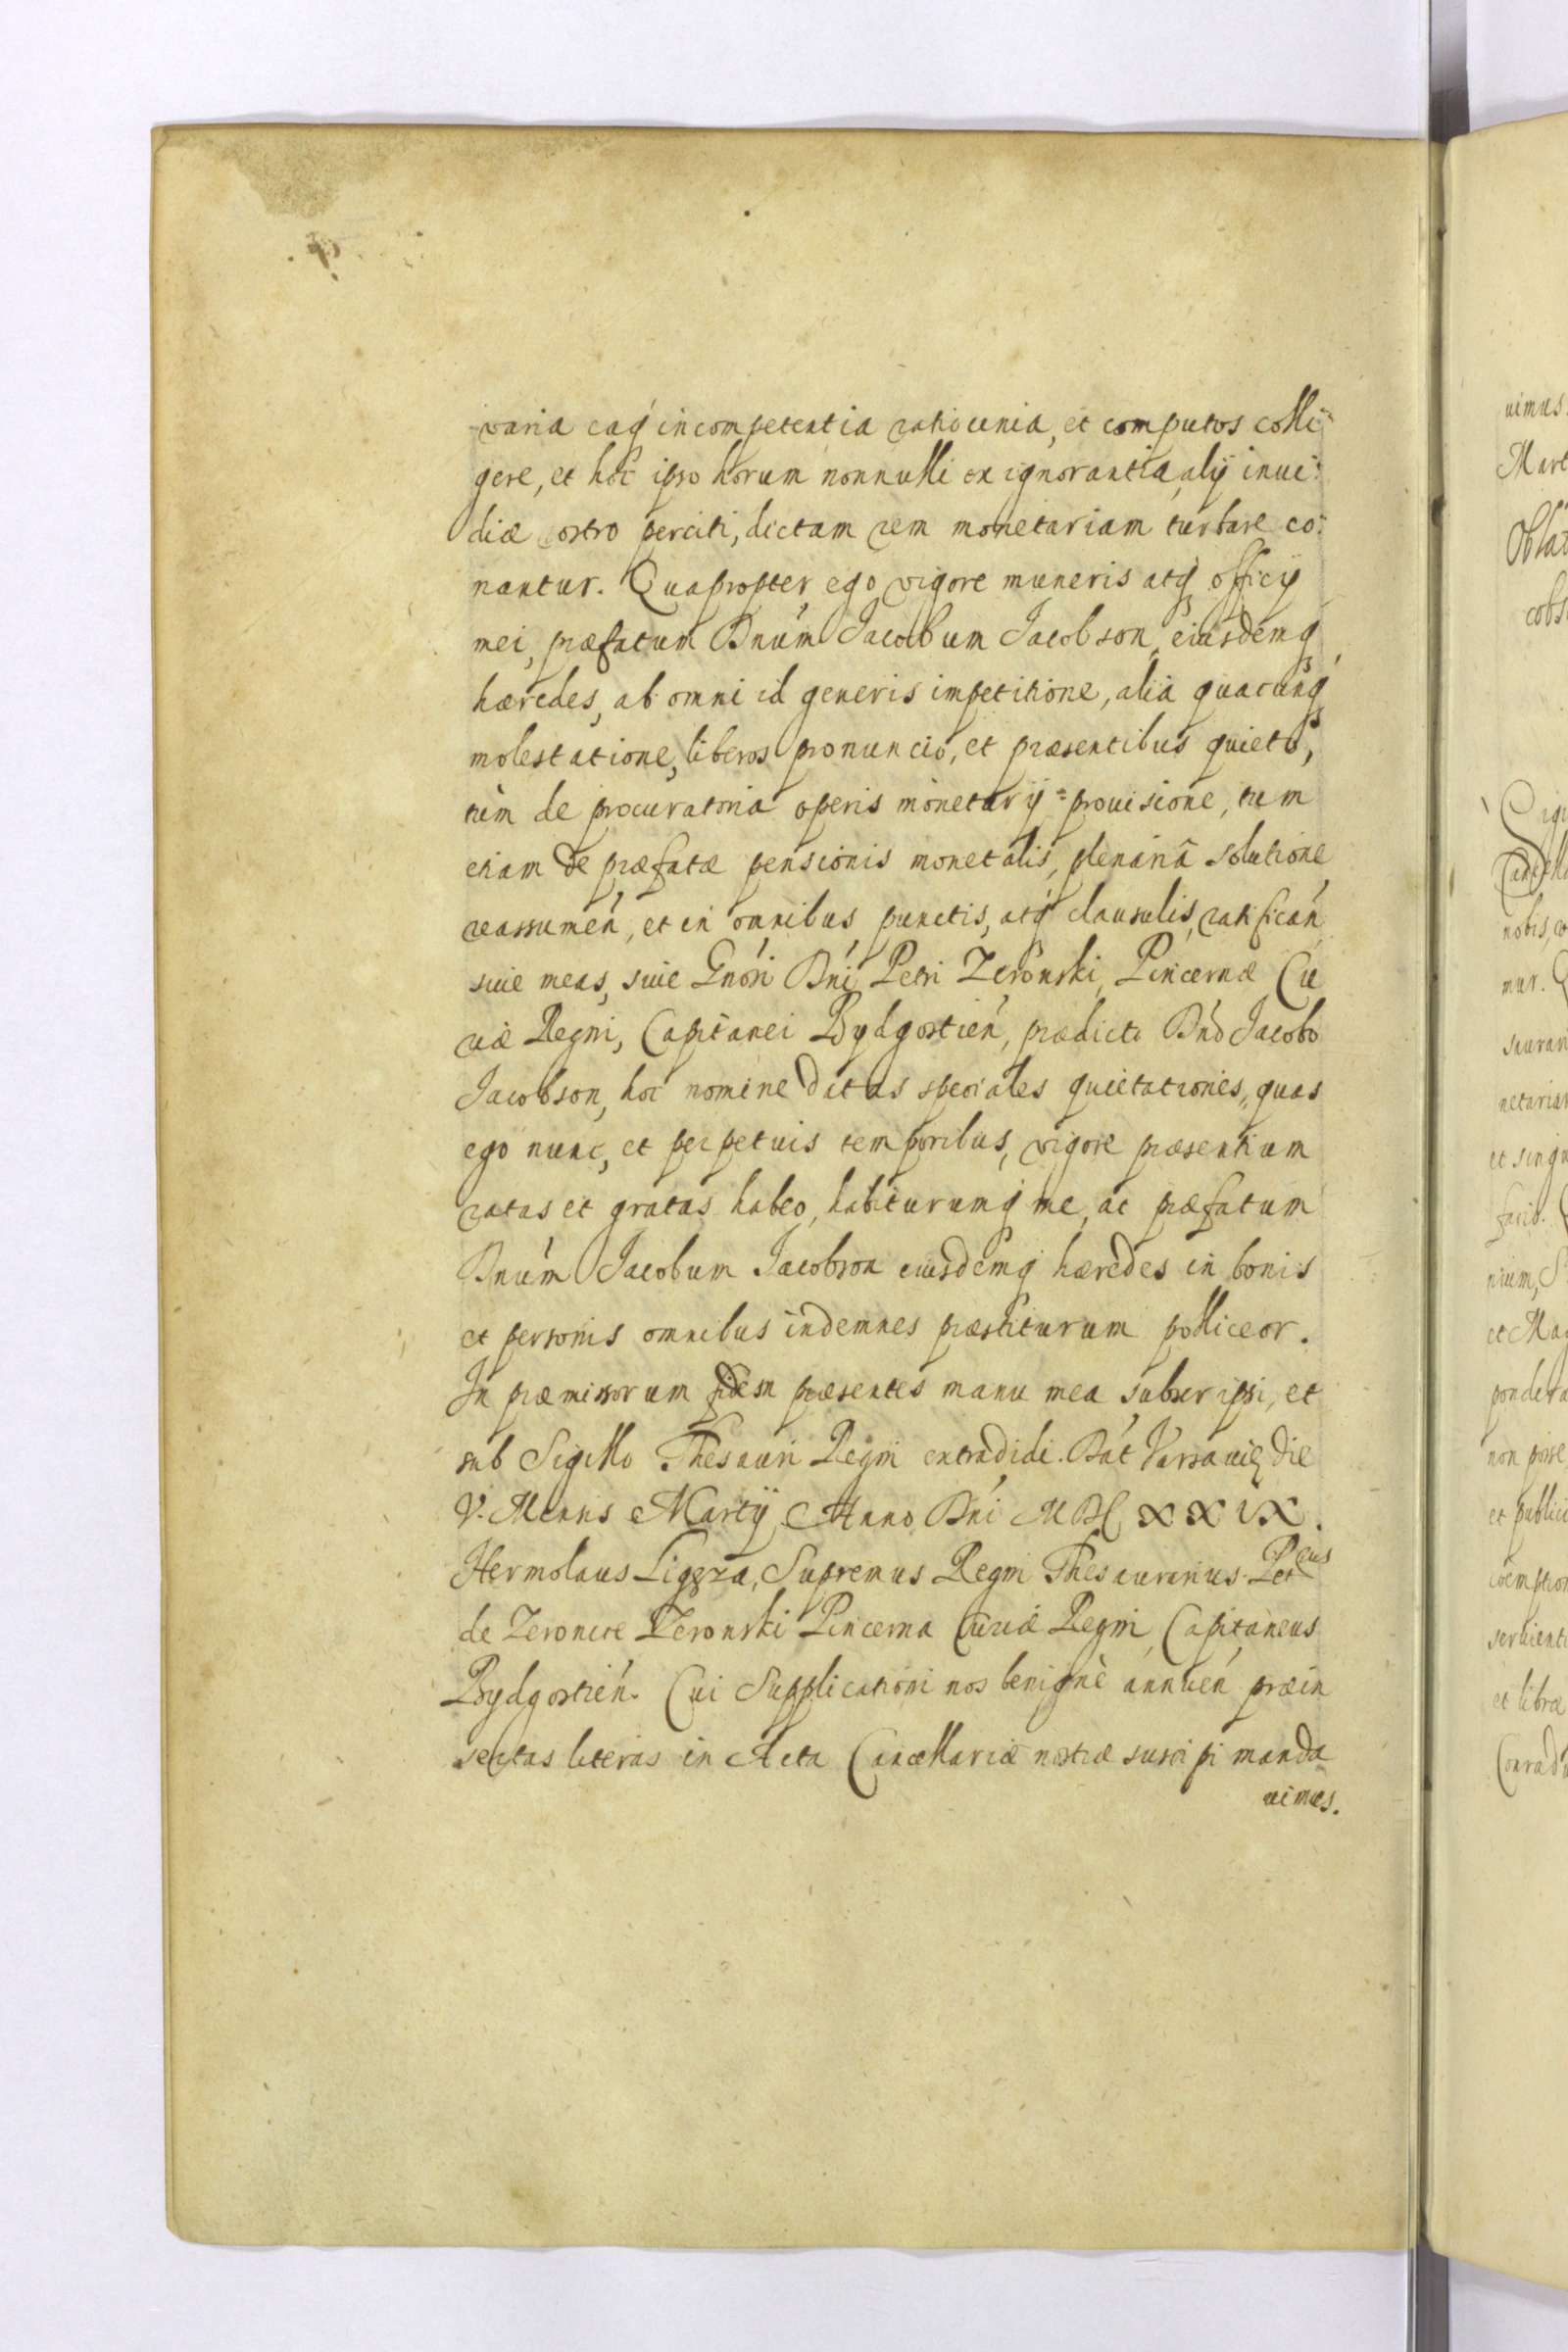 varia eaq́ incompetentia ratiocinia, et computos colli
gere, et hoc ipso horum nonnulli ex ignorantia, alÿ inui:
diæ œstro perciti, dictam rem monetariam turbare co:
nantur. Quapropter ego vigore muneris atq́ officÿ
mei, præfatum Dnúm Jacobum Jacobson, eiusdemq́
hæredes, ab omni id generis impetitione, aliá quacunq́
molestatione, liberos pronuncio, et præsentibus quieto,
tùm de procuratoria operis monetarÿ prouisione, tum
etiam de præfatæ pensionis monetalis, plenariâ solutione
reassumeń, et in omnibus punctis, atq́ clausulis, ratificań
siue meas, siue Gnósi Dńi Petri Zeronski, Pincernæ Cu
riæ Regni, Capitanei Bydgostień, prædicto Dńo Jacobo
Jacobson, hoc nomine datas speciales quietationes, quas
ego nunc, et perpetuis temporibus, vigore præsentium
ratas et gratas habeo, habiturumq́ me, ac præfatum
Dnúm Jacobum Jacobson eiusdemq́ hæredes in bonis
et personis omnibus indemnes præstiturum polliceor.
In præmissorum fidem præsentes manu mea subscripsi, et
sub Sigillo Thesauri Regni extradidi. Dat́ Varsauię die
V. Mensis Martÿ Anno Dńi MDCXXIX.
Hermolaus Ligęza, Supremus Regni Thesaurarius. Petrus
de Zeronice Zeronski Pincerna Curiæ Regni Capitaneus
Bydgostień. Cui Supplicationi nos benignè annueń præin
sertas literas in Acta Cancellariæ nostræ suscipi manda
uimus.
uimus.
Mart
Oblat
cobs
nobis,
mur.
sauran
netariam
et singu
facio.
nium,
et Mag
pondera
non posse
et publici
coemption
seruient
et libræ
Conrad